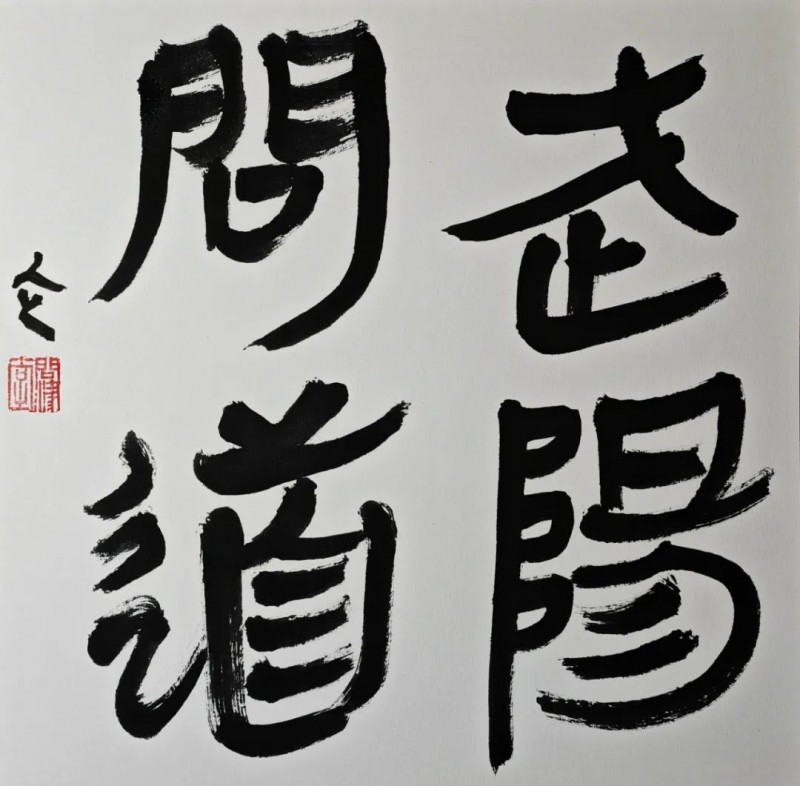 武陽
問道